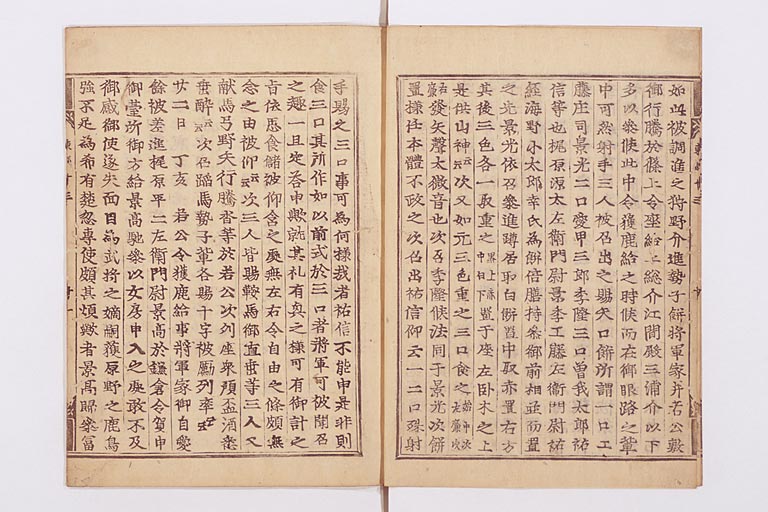 如此被調進之狩野介進勢子餅將軍家并若公敷
御行騰於篠上令座給上総介江間殿三浦介以下
多以參候此中令獲鹿給之時候而在御眼路之輩
中可然射手三人被召出之賜矢口餅所謂一口工
藤庄司景光二口愛甲三郎季隆三口曽我太郎祐
信等也梶原源太左衛門尉景季工藤左衛門尉祐
経海野小太郎幸氏為餅倍膳持參御前相並而置
之先景光依召參進蹲居取白餅置中取赤置右方
其後三色各一取重之黒上赤中白下置于座左卧木之上
是供山神云々次又如元三色重之三口食之始中次左廉次
右廉發矢聲太微音也次召季隆候法同于景光次餅
置様任本體不改之次召出祐信仰云一二口殊射
手賜之三口事可為何様哉者祐信不能申是非則
食三口其所作如以前式於三口者將軍可被聞召
之趣一旦定答申歟就其礼有興之様可有御計之
旨依思食儲被仰含之處無左右令自由之條頗無
念之由被仰云々次三人皆賜鞍馬御直垂等三人又
献馬弓野矢行騰沓等於若公次列座衆預盃酒悉
乗醉云々次召踏馬勢子輩各賜十字被勵列卒云々
廿二日 丁亥 若公令獲鹿給事將軍家御自愛
餘被差進梶原平二左衛門尉景高於鎌倉令賀申
御臺所御方給景高馳參以女房申入之處敢不及
御感御使還失面目為武将之嫡嗣獲原野之鹿鳥
強不足為希有楚忽專使頗其煩歟者景高歸參冨